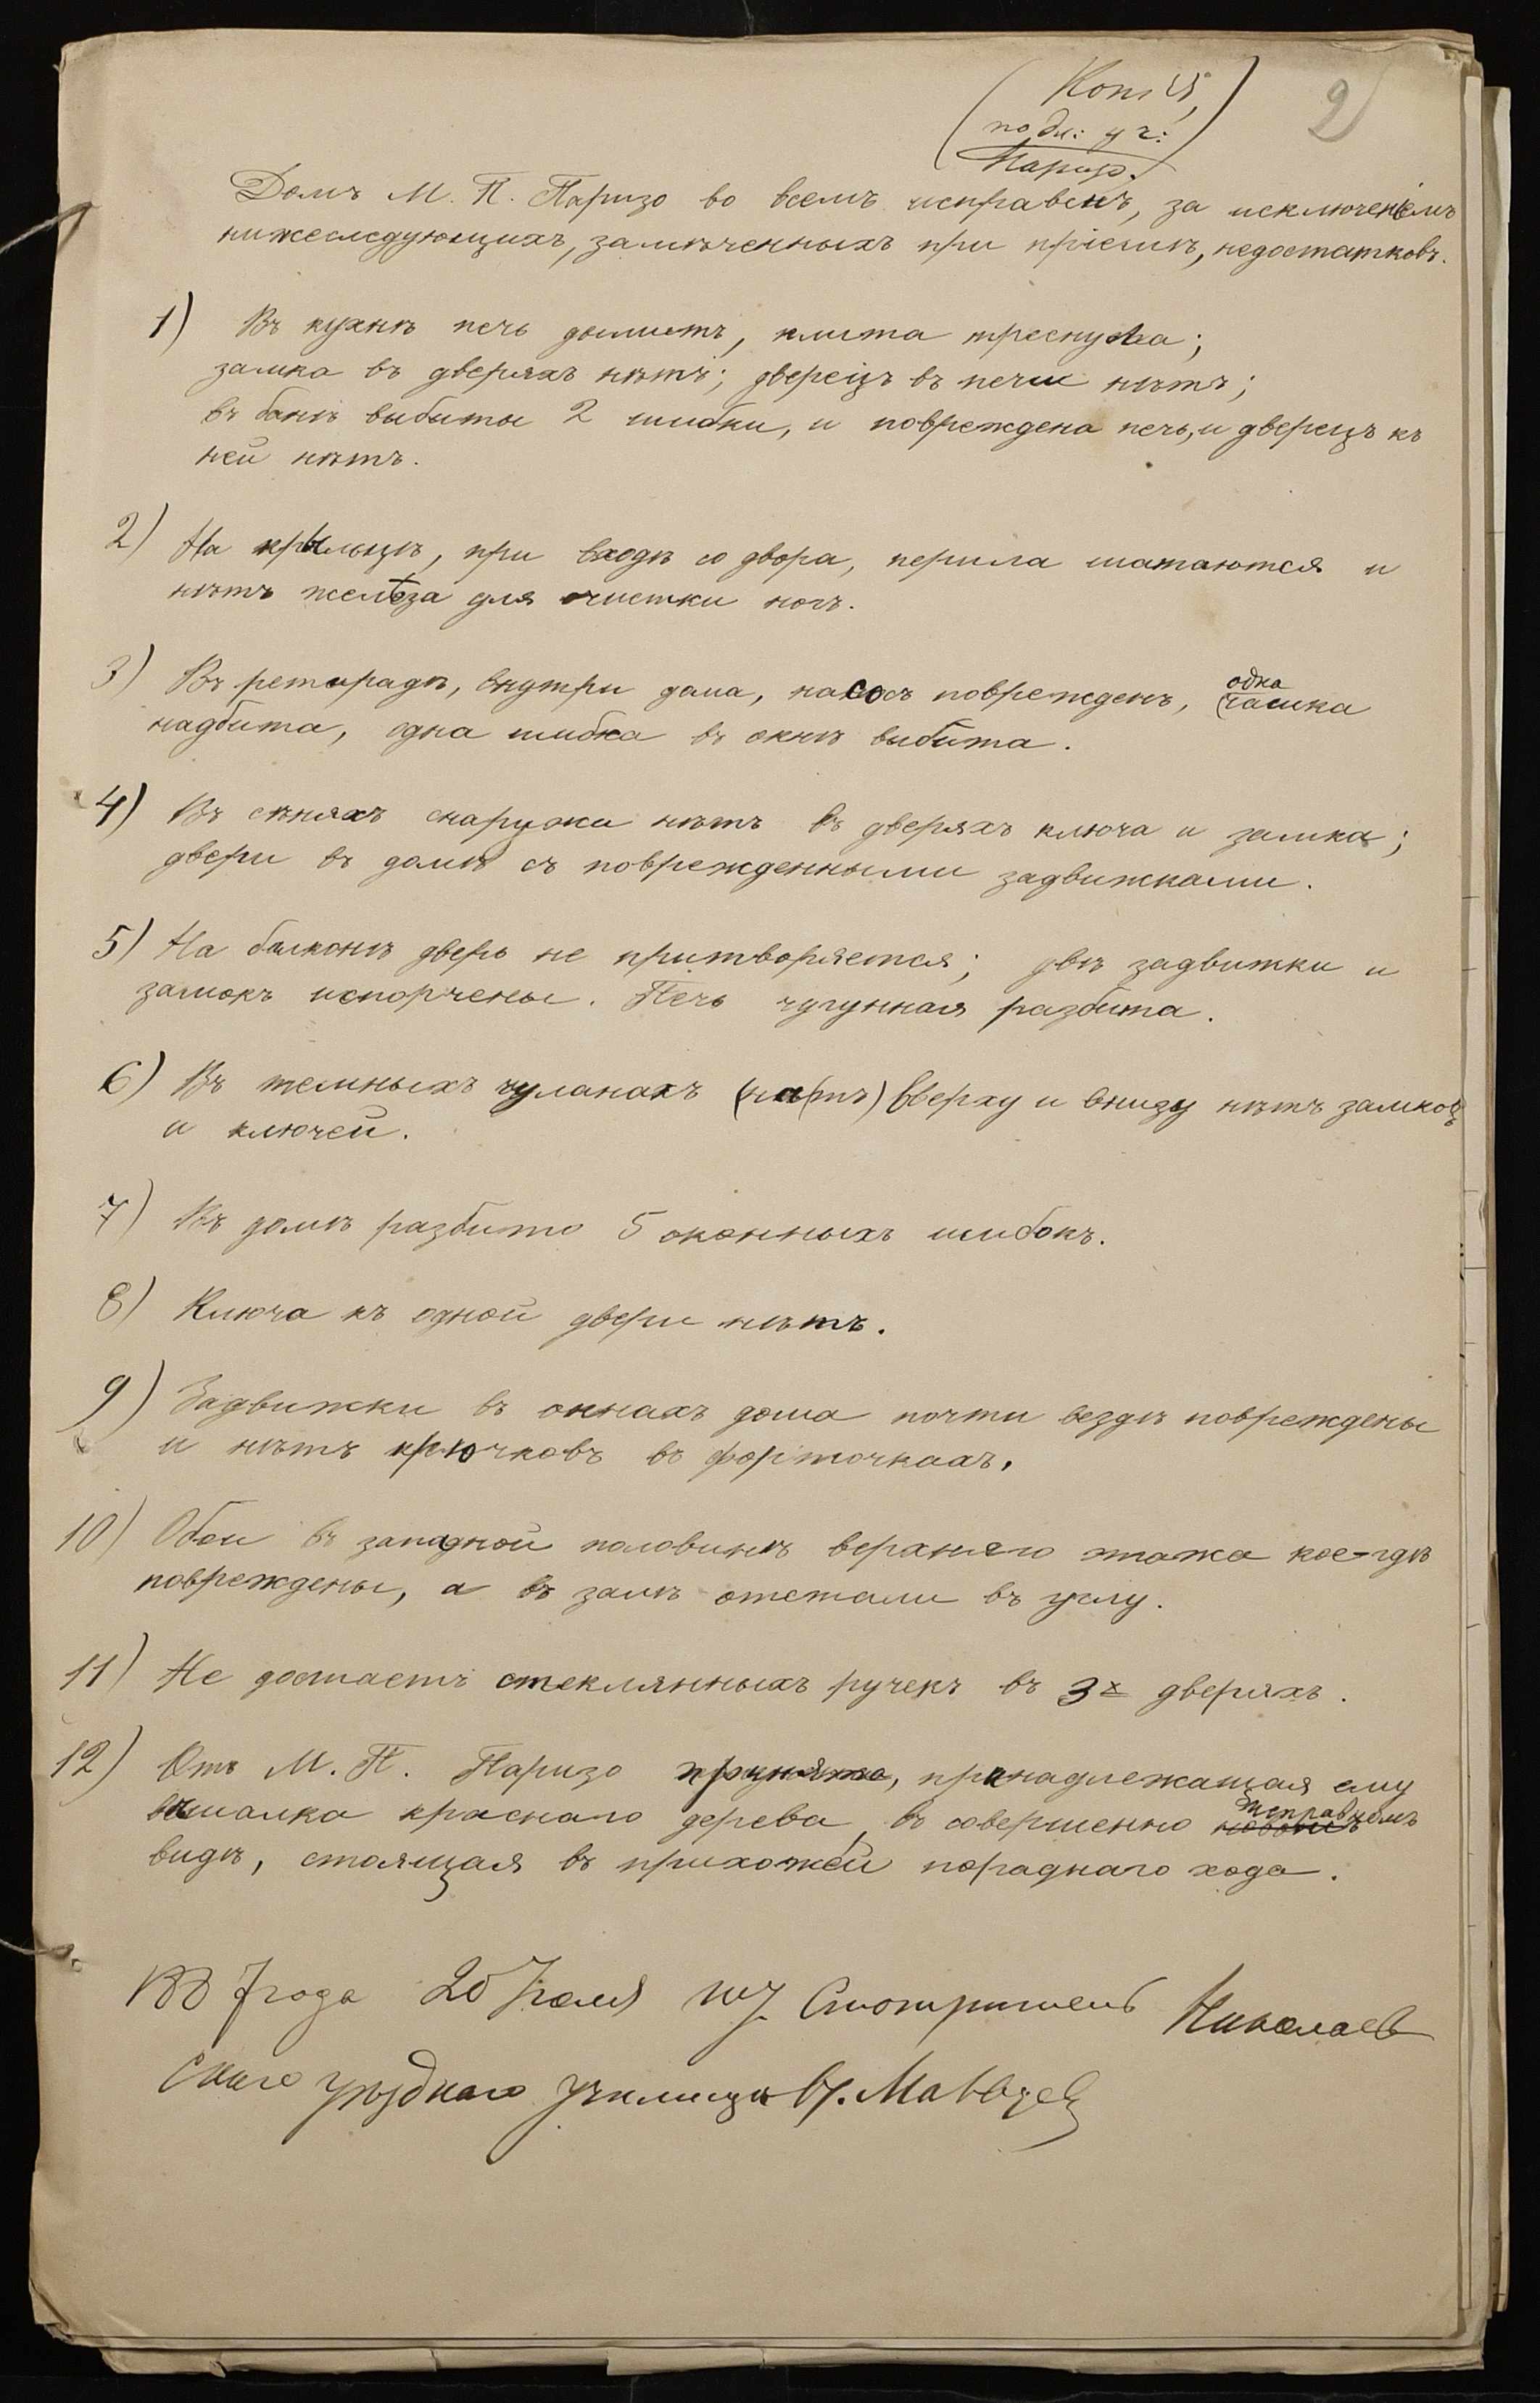 (Копія,
подл: у г:
Паризо.)
2
Домъ М. П. Паризо во всемъ исправенъ, за исключеніемъ
нижеслѣдующихъ, замѣченныхъ при пріемкѣ, недостатковъ.
1) Въ кухнѣ печь дымитъ, плита треснула;
замка въ дверяхъ нѣтъ; дверецъ въ печи нѣтъ;
въ банѣ выбиты 2 шибки, и повреждена печь, и дверецъ къ
ней нѣтъ.
2) На крыльцѣ, при входѣ со двора, перила шатаются и
нѣтъ желѣза для очистки ногъ.
3) Въ ретирадѣ, внутри дома, насосъ поврежденъ, одна чашка
надбита, одна шибка въ окнѣ выбита.
4) Въ сѣняхъ снаружи нѣтъ въ дверяхъ ключа и замка;
двери въ домѣ съ поврежденными задвижками.
5) На балконѣ дверь не притворяется; двѣ задвижки и
замокъ испорчены. Печь чугунная разбита.
6) Въ темныхъ чуланахъ (нѣтъ) вверху и внизу нѣтъ замковъ
и ключей.
7) Въ домѣ разбито 5 оконныхъ шибокъ.
8) Ключа къ одной двери нѣтъ.
9) Задвижки въ окнахъ дома почти вездѣ повреждены
и нѣтъ крючковъ въ форточкахъ.
10) Обои въ западной половинѣ верхняго этажа кое-гдѣ
повреждены, а въ залѣ отстали въ углу.
11) Не достаетъ стеклянныхъ ручекъ въ 3х дверяхъ.
12) Отъ М. П. Паризо принята, принадлежащая ему
вѣшалка краснаго дерева, въ совершенно исправномъ
видѣ, стоящая въ прихожей параднаго хода.
1887 года 20 Іюля Шт. Смотритель Николаев
скаго уѣзднаго училища В.